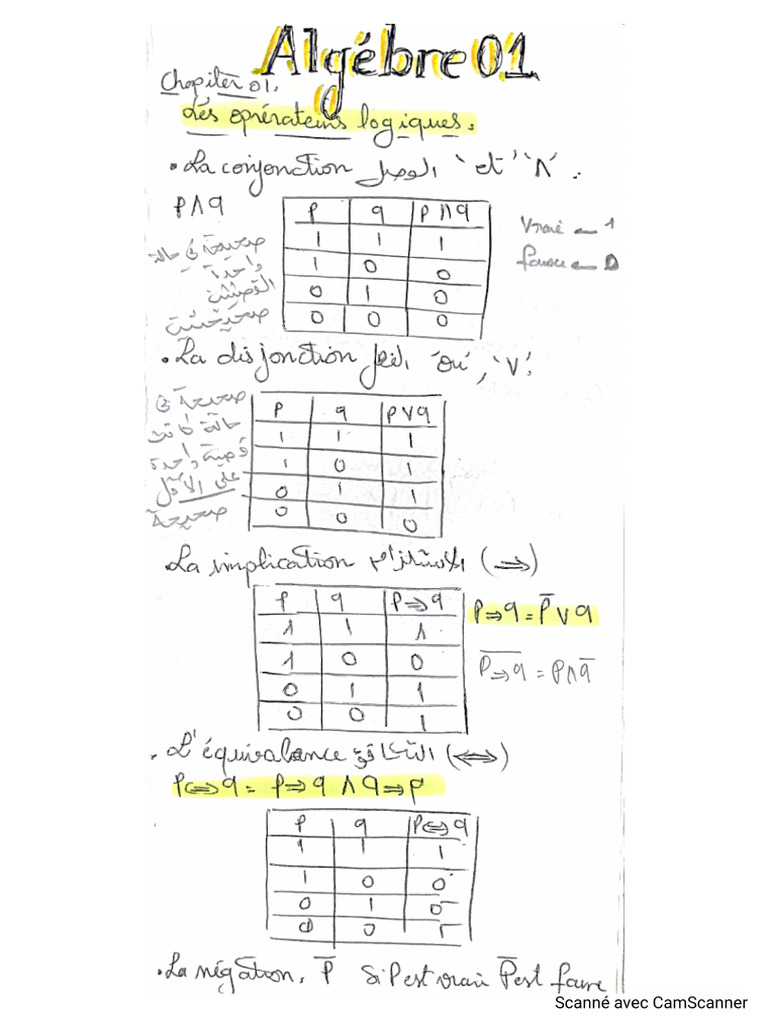 Algébre 01
Chapiter 01.
Les opérateurs logiques.
• La conjonction الوصل "et" "∧".
P∧q
P q P∧q
1 1 1
1 0 0
0 1 0
0 0 0
صحيحة في حالة
واحدة
صحيحتين
Vraie ← 1
fausse ← 0
• La disjonction الفصل "ou", "∨".
صحيحة في
حالة كانت
قضية واحدة
على الأقل
صحيحة
P q P∨q
1 1 1
1 0 1
0 1 1
0 0 0
La implication الاستلزام (⇒)
P q P⇒q
1 1 1
1 0 0
0 1 1
0 0 1
P⇒q = P̅ ∨ q
P̅⇒̅q̅ = P∧q̅
• L'équivalance التكافؤ (⇔)
P⇔q = P⇒q ∧ q⇒p
P q P⇔q
1 1 1
1 0 0
0 1 0
0 0 1
• La négation. P̅ Si P est vraie P̅ est fausse
Scanné avec CamScanner